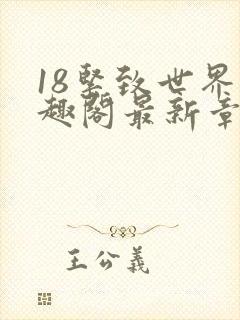 18墅致世界
趣阁最新章
王公義